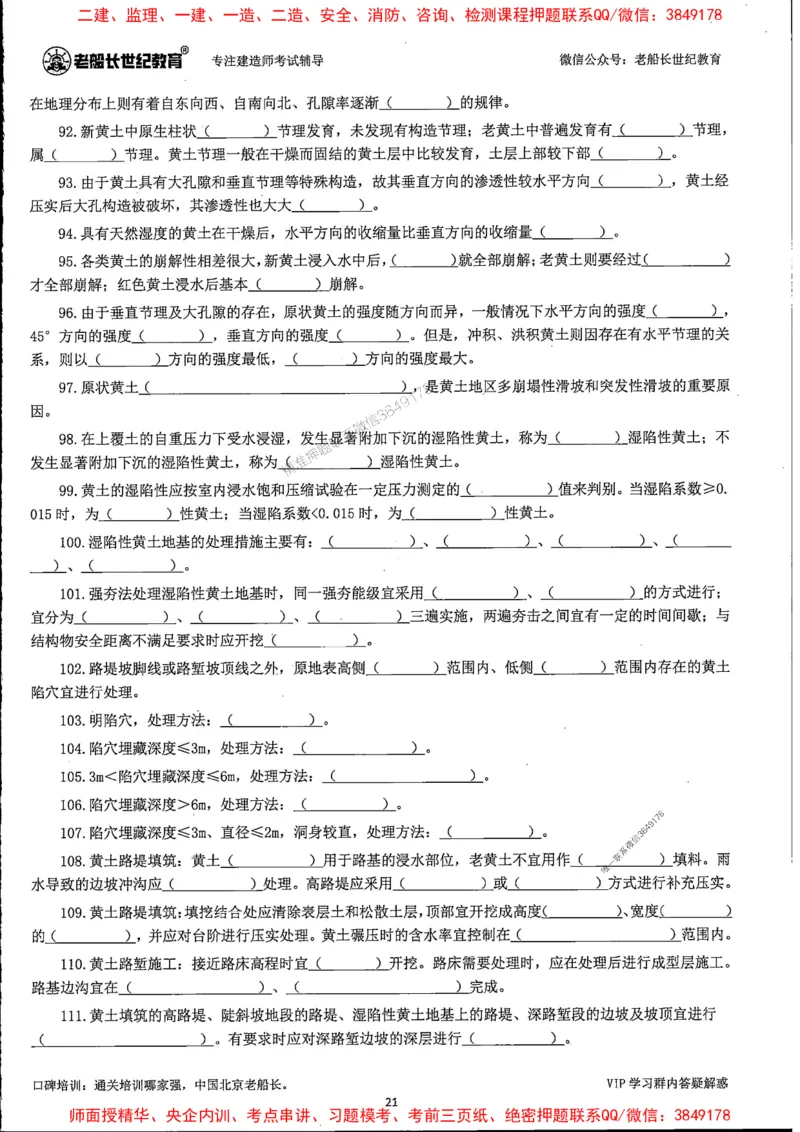 二建、监理、一建、一造、二造、安全、消防、咨询、检测课程押题联系QQ/微信：3849178
老船长世纪教育® 专注建造师考试辅导 微信公众号：老船长世纪教育
在地理分布上则有着自东向西、自南向北、孔隙率逐渐（ ）的规律。
92.新黄土中原生柱状（ ）节理发育，未发现有构造节理；老黄土中普遍发育有（ ）节理，
属（ ）节理。黄土节理一般在干燥而固结的黄土层中比较发育，土层上部较下部（ ）。
93.由于黄土具有大孔隙和垂直节理等特殊构造，故其垂直方向的渗透性较水平方向（ ），黄土经
压实后大孔构造被破坏，其渗透性也大大（ ）。
94.具有天然湿度的黄土在干燥后，水平方向的收缩量比垂直方向的收缩量（ ）。
95.各类黄土的崩解性相差很大，新黄土浸入水中后，（ ）就全部崩解；老黄土则要经过（ ）
才全部崩解；红色黄土浸水后基本（ ）崩解。
96.由于垂直节理及大孔隙的存在，原状黄土的强度随方向而异，一般情况下水平方向的强度（ ），
45°方向的强度（ ），垂直方向的强度（ ）。但是，冲积、洪积黄土则因存在有水平节理的关
系，则以（ ）方向的强度最低，（ ）方向的强度最大。
97.原状黄土（ ），是黄土地区多崩塌性滑坡和突发性滑坡的重要原
因。
98.在上覆土的自重压力下受水浸湿，发生显著附加下沉的湿陷性黄土，称为（ ）湿陷性黄土；不
发生显著附加下沉的湿陷性黄土，称为（ ）湿陷性黄土。
精准押题联系微信3849178
99.黄土的湿陷性应按室内浸水饱和压缩试验在一定压力测定的（ ）值来判别。当湿陷系数≥0.
015时，为（ ）性黄土；当湿陷系数<0.015时，为（ ）性黄土。
100.湿陷性黄土地基的处理措施主要有：（ ）、（ ）、（ ）、（
）、（ ）。
101.强夯法处理湿陷性黄土地基时，同一强夯能级宜采用（ ）、（ ）的方式进行；
宜分为（ ）、（ ）、（ ）三遍实施，两遍夯击之间宜有一定的时间间歇；与
结构物安全距离不满足要求时应开挖（ ）。
102.路堤坡脚线或路堑坡顶线之外，原地表高侧（ ）范围内、低侧（ ）范围内存在的黄土
陷穴宜进行处理。
103.明陷穴，处理方法：（ ）。
104.陷穴埋藏深度≤3m，处理方法：（ ）。
105.3m＜陷穴埋藏深度≤6m，处理方法：（ ）。
106.陷穴埋藏深度＞6m，处理方法：（ ）。
107.陷穴埋藏深度≤3m、直径≤2m，洞身较直，处理方法：（ ）。
唯一联系微信3849178
108.黄土路堤填筑：黄土（ ）用于路基的浸水部位，老黄土不宜用作（ ）填料。雨
水导致的边坡冲沟应（ ）处理。高路堤应采用（ ）或（ ）方式进行补充压实。
109.黄土路堤填筑：填挖结合处应清除表层土和松散土层，顶部宜开挖成高度（ ）、宽度（ ）
的（ ），并应对台阶进行压实处理。黄土碾压时的含水率宜控制在（ ）范围内。
110.黄土路堑施工：接近路床高程时宜（ ）开挖。路床需要处理时，应在处理后进行成型层施工。
路基边沟宜在（ ）、（ ）完成。
111.黄土填筑的高路堤、陡斜坡地段的路堤、湿陷性黄土地基上的路堤、深路堑段的边坡及坡顶宜进行
（ ）。有要求时应对深路堑边坡的深层进行（ ）。
口碑培训：通关培训哪家强，中国北京老船长。 VIP学习群内答疑解惑
21
师面授精华、央企内训、考点串讲、习题模考、考前三页纸、绝密押题联系QQ/微信：3849178